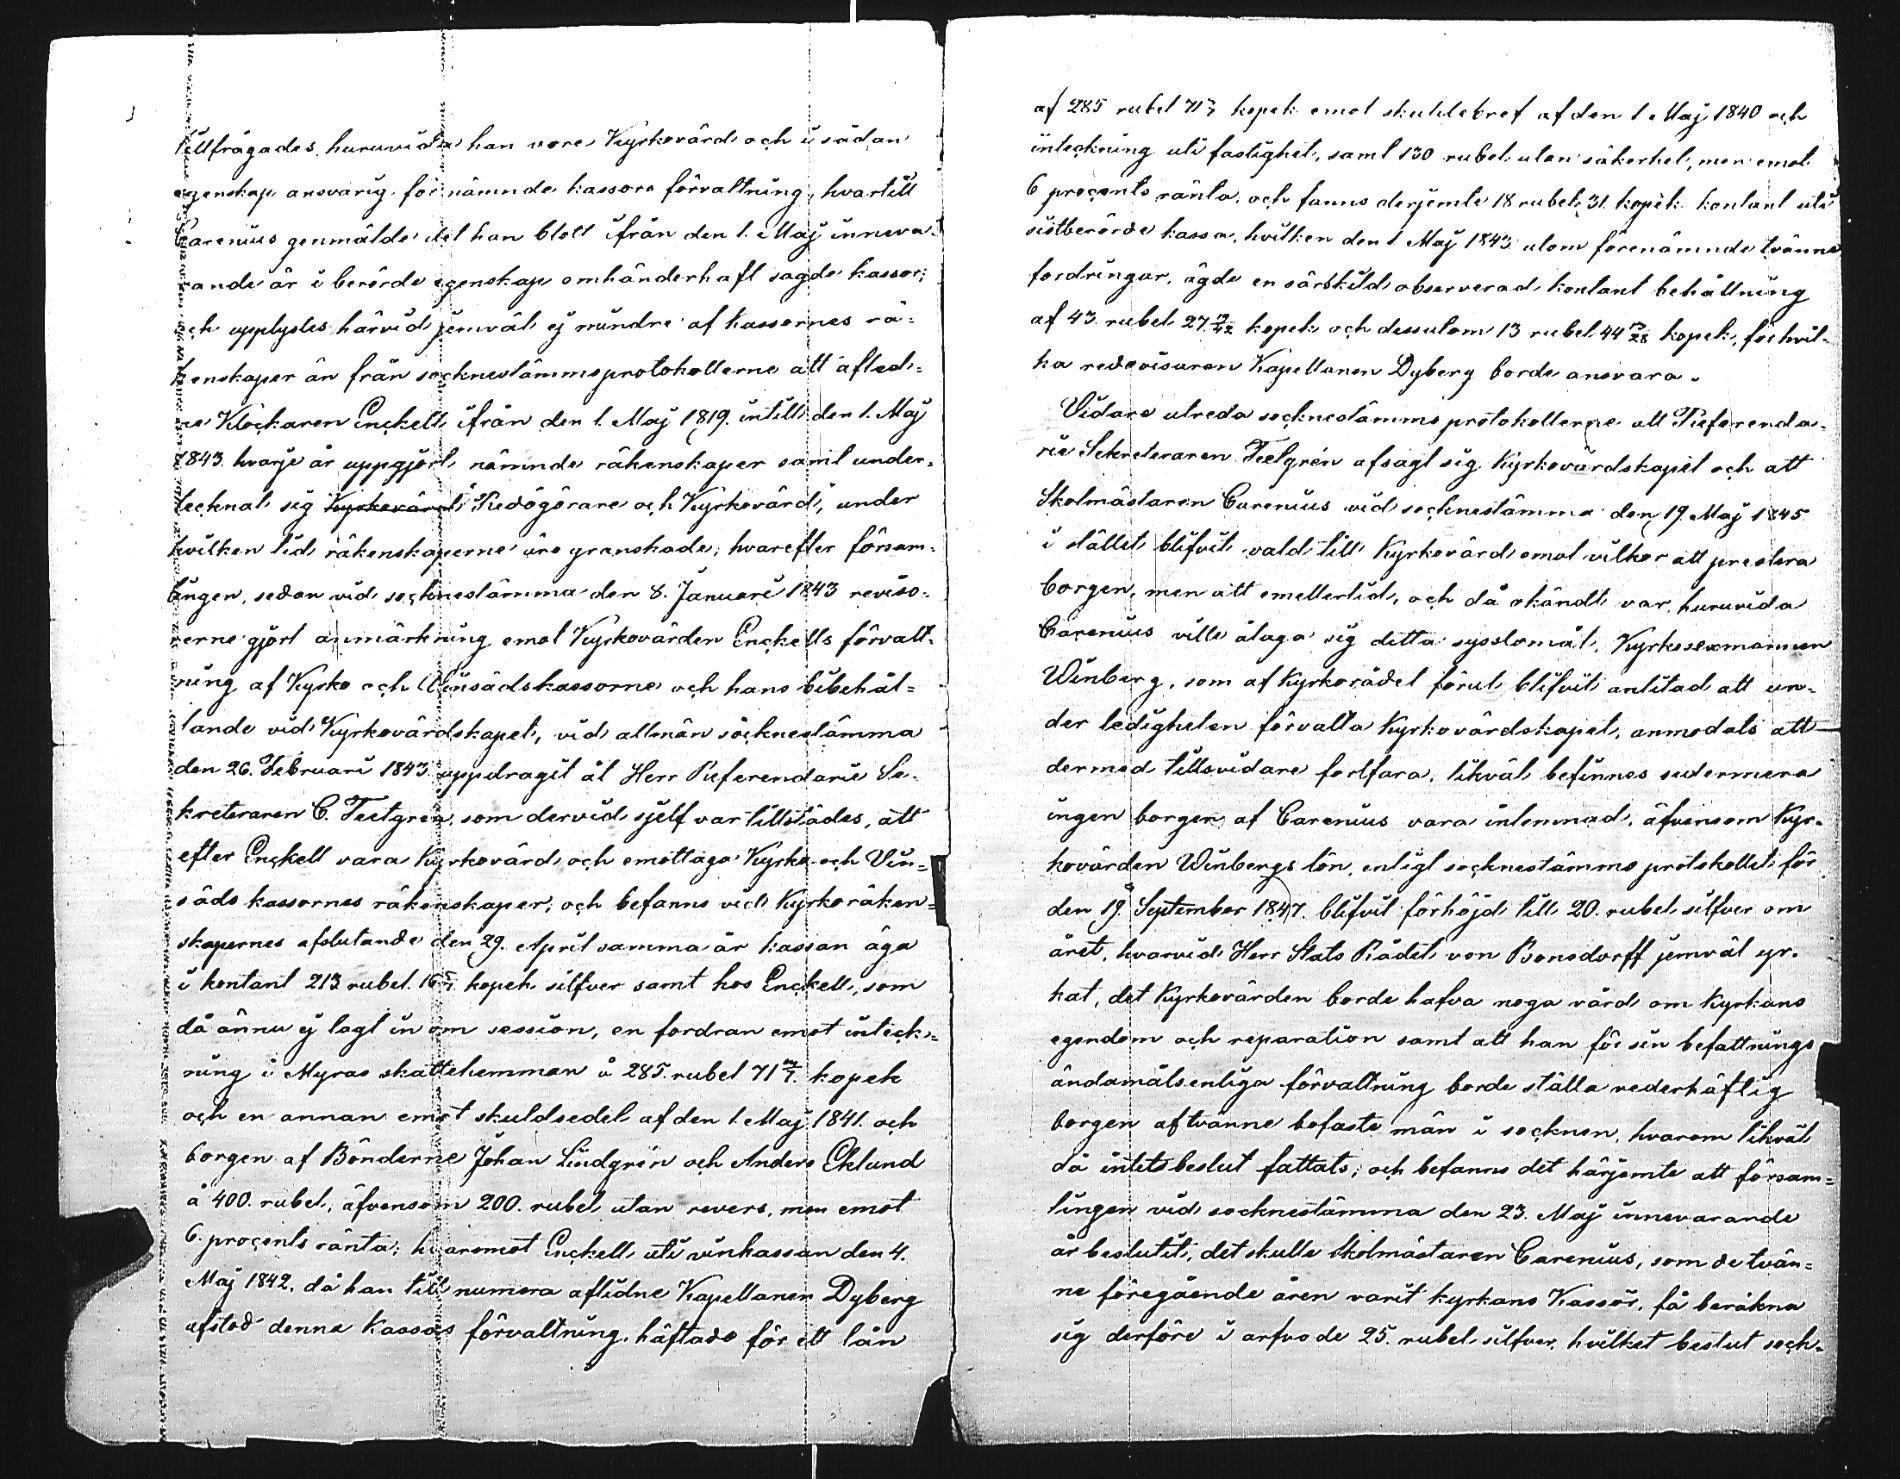 tillfrågades, huruvida han vore Kyrkovärd och i sådan
egenskap ansvarig för nämnde kassors förvaltning, hvartill
Carenius genmälde det han blott ifrån den 1. Maj inneva-
rande år i berörde egenskap omhänderhaft sagde kassor;
och upplystes härvid jemväl ej mindre af kassornes rä-
kenskaper än från socknestämmoprotokollerne att aflid-
ne Klockaren Enckell ifrån den 1. Maj 1819. intill den 1. Maj
1843. hvarje år uppgjort nämnde räkenskaper samt under-
tecknat sig Kyrkovärd "Redogörare och Kyrkovärd", under
hvilken tid räkenskaperne äro granskade; hvarefter försam-
lingen, sedan vid socknestämma den 8. Januari 1843 reviso-
rerne gjort anmärkning emot Kyrkovärden Enckells förvalt-
ning af Kyrko och Vinsädskassorne och hans bibehål-
lande vid Kyrkovärdskapet, vid allmän socknestämma
den 26. Februari 1843 uppdragit åt Herr Referendarie Se-
kreteraren C. Feetgren, som dervid sjelf var tillstädes, att
efter Enckell vara Kyrkovärd och emottaga Kyrko och Vin-
säds kassornes räkenskaper; och befanns vid Kyrkoräken-
skapernes afslutande den 29. April samma år kassan äga
i kontant 213 rubel 16 5/7 kopek silfver samt hos Enckell, som
då ännu ej lagt in om session, en fordran emot inteck-
ning i Myras skattehemman å 285. rubel 71 3/7. kopek
och en annan emot skuldsedel af den 1. Maj 1841. och
borgen af Bönderne Johan Lindgrén och Anders Eklund
å 400. rubel, äfvensom 200. rubel utan revers, men emot
6. procents ränta; hvaremot Enckell uti vinkassan den 4.
Maj 1842. då han till numera aflidne Kapellanen Dyberg
afstod denna Kassas förvaltning, häftade för ett lån
af 285 rubel 71 3/7 kopek emot skuldebref af den 1 Maj 1840 och
inteckning uti fastighet, samt 130 rubel utan säkerhet, men emot
6 procents ränta, och fanns derjemte 18 rubel 31. kopek kontant uti
sistberörde kassa, hvilken den 1 Maj 1843 utom förenämnde tvänne
fordringar, ägde en särskild observerad kontant behållning
af 43. rubel 27 kopek och dessutom 13 rubel 44 kopek, för hvil-
ka redovisaren Kapellanen Dyberg borde ansvara.
Vidare utreda socknestämmo protokollerne att Referenda-
rie Sekreteraren Feetgrén afsagt sig Kyrkovärdskapet och att
Skolmästaren Carenius vid socknestämma den 19. Maj 1845
i stället blifvit vald till Kyrkovärd emot vilkor att prestera
borgen, men att emellertid, och då okändt var, huruvida
Carenius ville åtaga sig detta sysslomål, Kyrkosexmannen
Winberg, som af Kyrkorådet förut blifvit antitad att un-
der ledigheten förvalta Kyrkovärdskapet, anmodats att
dermed tillsvidare fortfara, likväl befinnes sedermera
ingen borgen af Carenius vara inlemnad, äfvensom Kyr-
kovärden Winbergs lön, enligt socknestämmo protokollet för
den 19. September 1847. blifvit förhöjd till 20. rubel silfver om
året, hvarvid Herr Stats Rådet von Bonsdorff jemväl yr-
kat, det Kyrkovärden borde hafva noga vård om Kyrkans
egendom och reparation samt att han för sin befattnings
ändamålsenliga förvaltning borde ställa vederhäftig
borgen af tvänne bofaste män i socknen, hvarom likväl
då intet beslut fattats; och befanns det härjemte att försam-
lingen vid socknestämma den 23. Maj innevarande
år beslutit, det skulle Skolmästaren Carenius, som de tvän-
ne föregående åren varit Kyrkans Kassör, få beräkna
sig derföre i arfvode 25. rubel silfver, hvilket beslut sock-